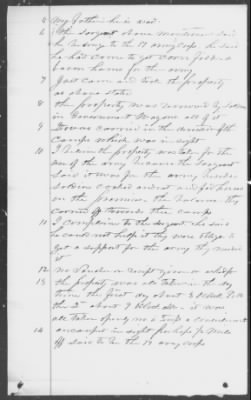 5 My Father he is dead
6 the Sergeant above mentioned said
he belong to the 17 army Corps he said
he had come to get corn fodder &
bacon hams for the army
7 Just came and took the property
as above stated
8 the property was removed by
in Government Wagons all of it
9 It was carried in the direction of the
Camps which was in sight
10 I know the property was taken for the
use of the army because the Sergeant
said it was for the army
Soldiers cooked and eat and fed horses
on the premises the balance they
carried off towards the camp
11 I complained to the Sergeant he said
he could not help it they were obliged to
get a support for the army they
it
12 No Voucher or receipt given or asked for
13 the property was all taken in the day
time the first day about 3 o'clock P.M.
the 2d about 9 o'clock AM - it was
all taken openly no
14 encamped in sight perhaps
off said to be the 17 army corps